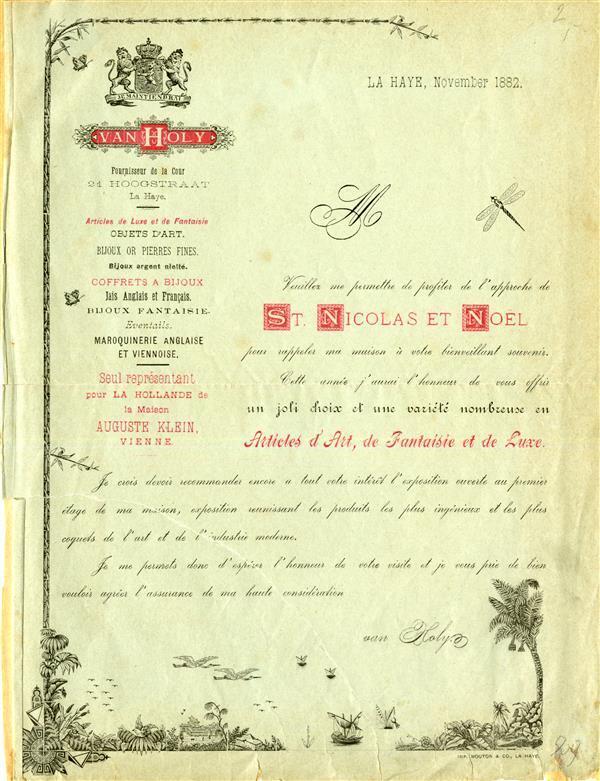 2
JE MAINTIENDRAI
VAN HOLY
Fournisseur de la Cour
21 HOOGSTRAAT
La Haye.
Articles de Luxe et de Fantaisie
OBJETS D'ART.
BIJOUX OR PIERRES FINES.
Bijoux argent niellé.
COFFRETS A BIJOUX
Jais Anglais et Français.
BIJOUX FANTAISIE.
Eventails.
MAROQUINERIE ANGLAISE
ET VIENNOISE.
Seul représentant
pour LA HOLLANDE de
la Maison
AUGUSTE KLEIN,
VIENNE.
LA HAYE, November 1882.
M
Veuillez me permettre de profiter de l'approche de
ST. NICOLAS ET NOEL
pour rappeler ma maison à votre bienveillant souvenir.
Cette année j'aurai l'honneur de vous offrir
un joli choix et une variété nombreuse en
Articles d'Art, de Fantaisie et de Luxe.
Je crois devoir recommander encore a tout votre intérêt l'exposition ouverte au premier
étage de ma maison, exposition reunissant les produits les plus ingénieux et les plus
coquets de l'art et de l'industrie moderne.
Je me permets donc d'espérer l'honneur de votre visite et je vous prie de bien
vouloir agréer l'assurance de ma haute considération
van Holy.
IMP. MOUTON & CO., LA HAYE.